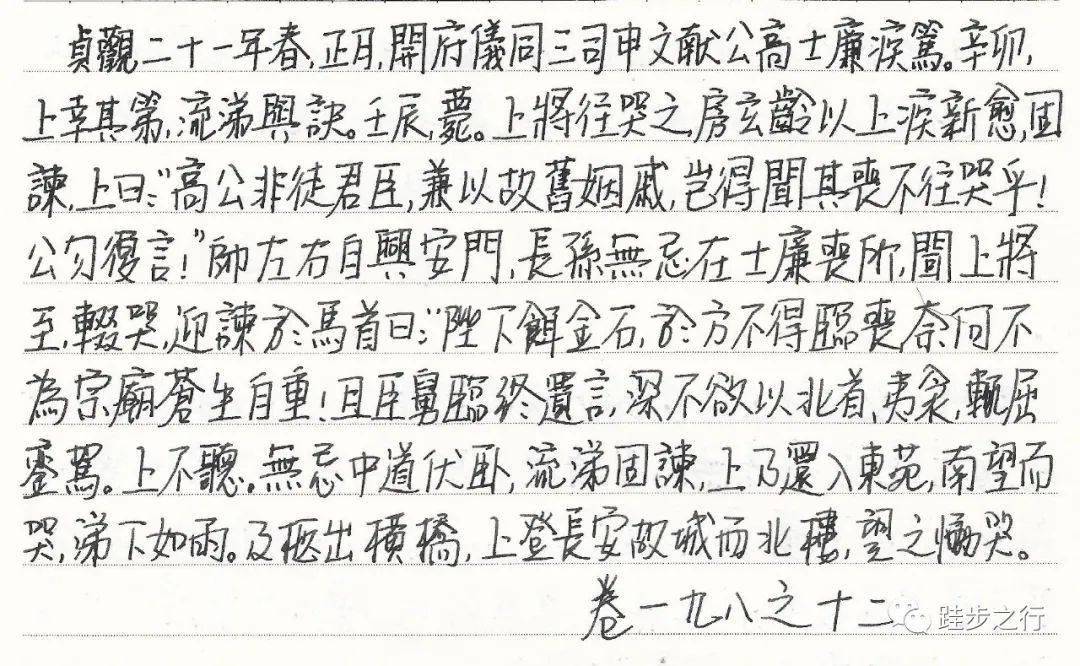 貞觀二十一年春,正月,開府儀同三司申文献公高士廉疾篤。辛卯,
上幸其第,流涕與訣。壬辰,薨。上將往哭之,房玄齡以上疾新愈,固
諫,上曰:“高公非徒君臣,兼以故舊姻戚,岂得聞其喪不往哭乎!
公勿復言!”帥左右自興安門,長孫無忌在士廉喪所,聞上將
至,輟哭,迎諫於馬首曰:“陛下餌金石,於方不得臨喪,奈何不
為宗廟蒼生自重!且臣舅臨終遺言,深不欲以北首、夷衾,輒屈
鑾駕。上不聽。無忌中道伏卧,流涕固諫,上乃還入東苑,南望而
哭,涕下如雨。及柩出橫橋,上登長安故城西北樓,望之慟哭。
卷一九八之十二
跬步之行